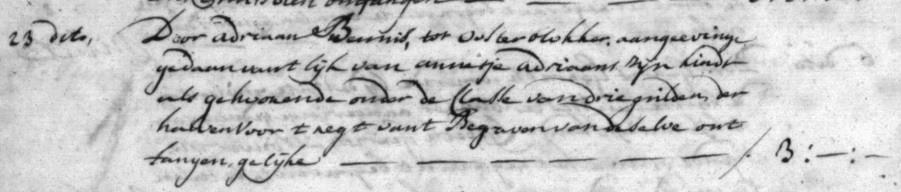 23 dito, Door adriaan Bennis, tot oosterblokker, aangeevinge
gedaan van't lijk van annetje adriaans zijn kindt
als gehoorende onder de Classe van drie gulden, der
halven voor t regt van't Begraven van deselve ont
fangen, gelijke — — — — — — /. 3:—:—